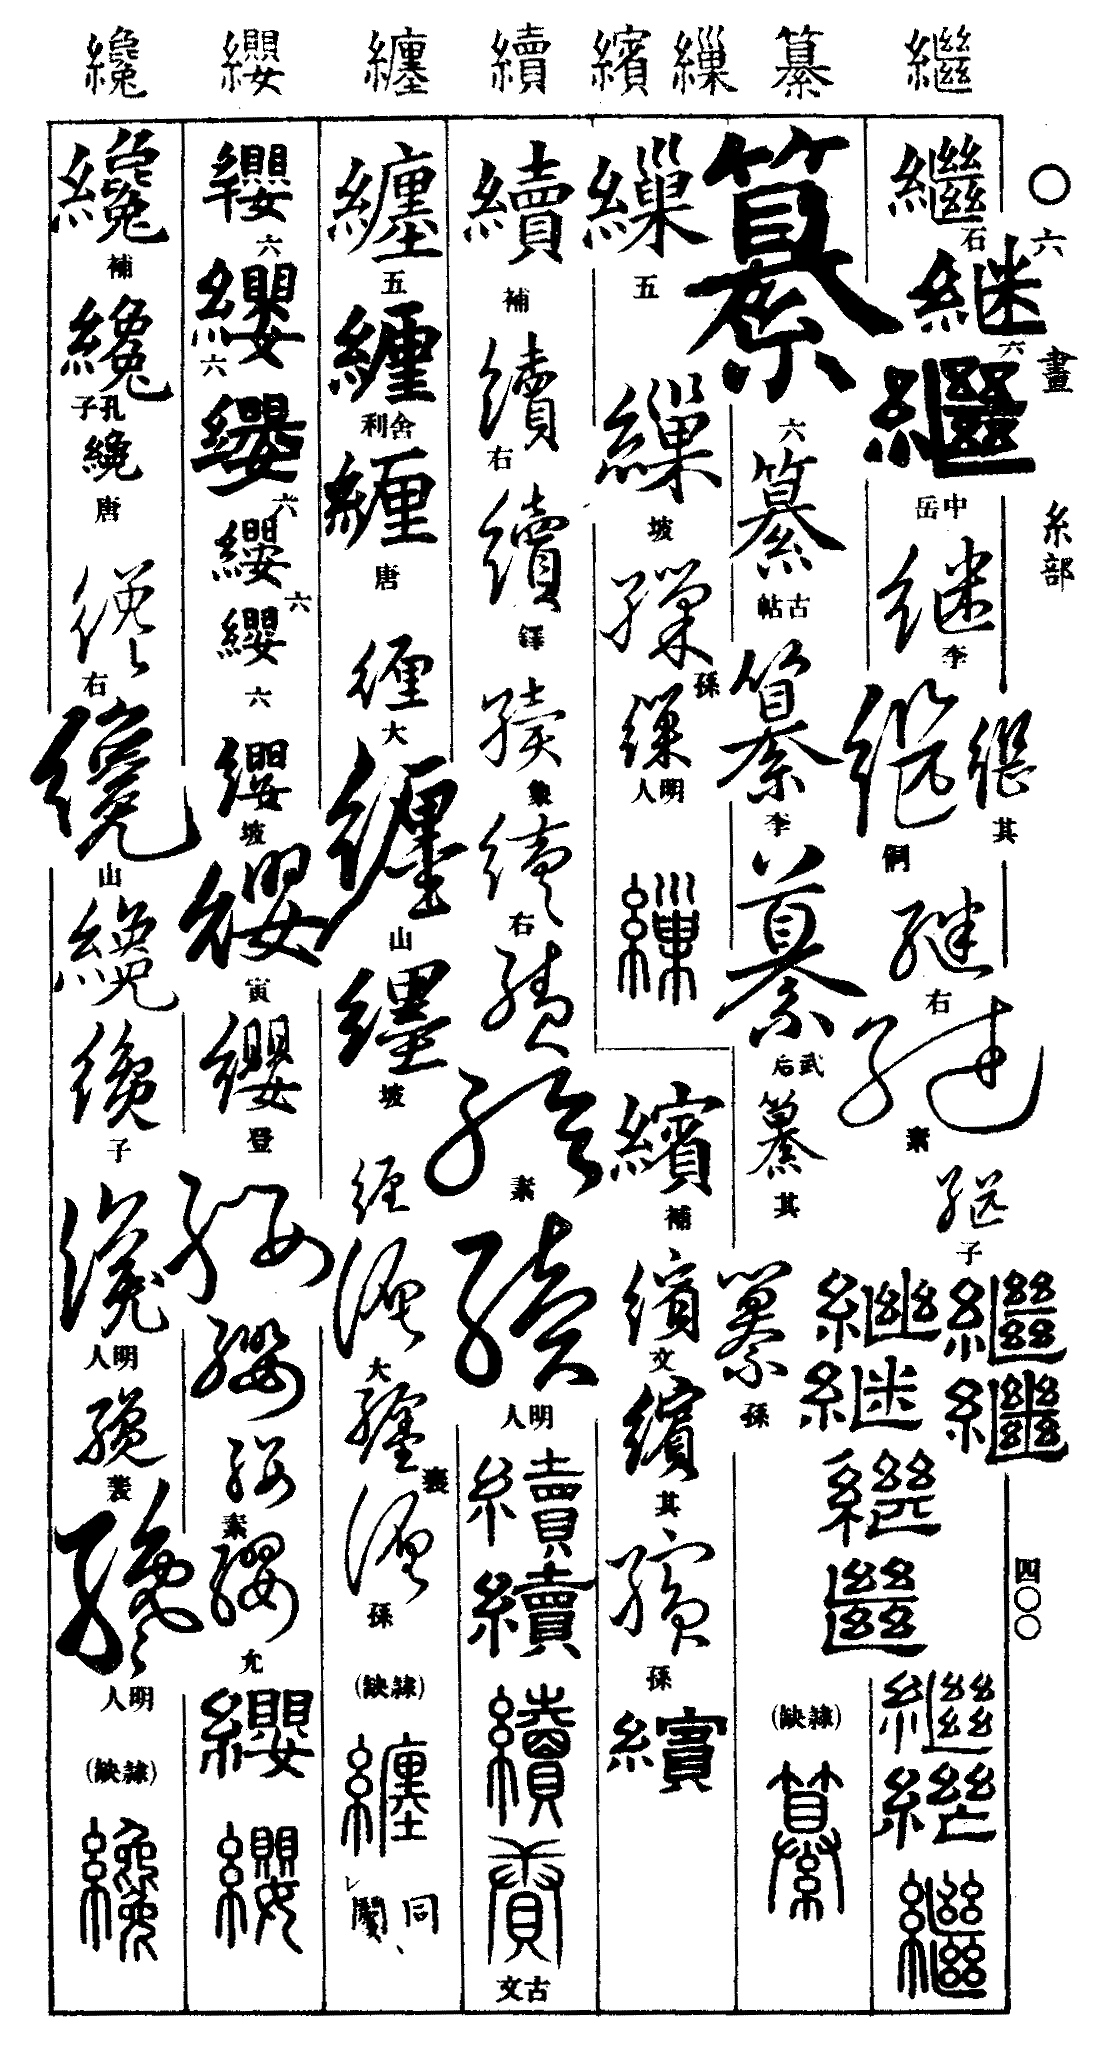 〇六畫 糸部 四〇〇
繼 纂 繅 繽 續 纏 纓 纔
繼 石 継 六 繼 岳中 継 李 継 倜 継 其 継 右 継 素 継 子 繼 繼 繼 継 繼 繼 繼 繼 繼
纂 六 纂 帖古 纂 李 纂 后武 纂 其 纂 孫 (缺隸) 纂
繅 五 繅 坡 繅 孫 繅 人明 繅
繽 補 繽 文 繽 其 繽 孫 繽
續 補 續 右 續 鐸 續 象 續 右 續 續 素 續 人明 續 續 續 賡 文古
纏 五 纏 利舍 纏 唐 纏 大 纏 山 纏 坡 纏 纏 大 纏 裘 纏 孫 (缺隸) 纏 同
纓 六 纓 六 纓 六 纓 六 纓 六 纓 坡 纓 寅 纓 登 纓 纓 纓 素 纓 允 纓 纓
纔 補 纔 子孔 纔 唐 纔 右 纔 山 纔 纔 子 纔 人明 纔 裘 纔 人明 (缺隸) 纔